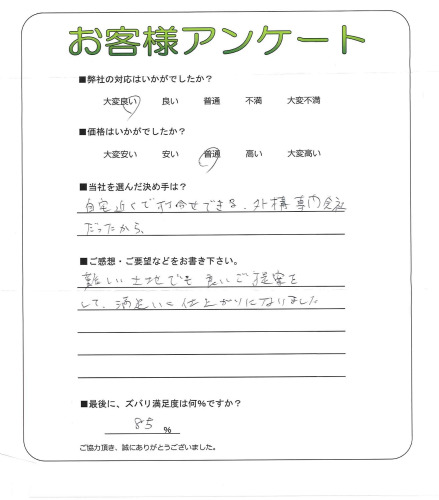 お客様アンケート
■弊社の対応はいかがでしたか?
大変良い 良い 普通 不満 大変不満
■価格はいかがでしたか?
大変安い 安い 普通 高い 大変高い
■当社を選んだ決め手は?
自宅近くで打合せできる、外構専門会社
だったから、
■ご感想・ご要望などをお書き下さい。
難しい土地でも良いご提案を
して、満足いく仕上がりになりました
■最後に、ズバリ満足度は何%ですか?
85 %
ご協力頂き、誠にありがとうございました。